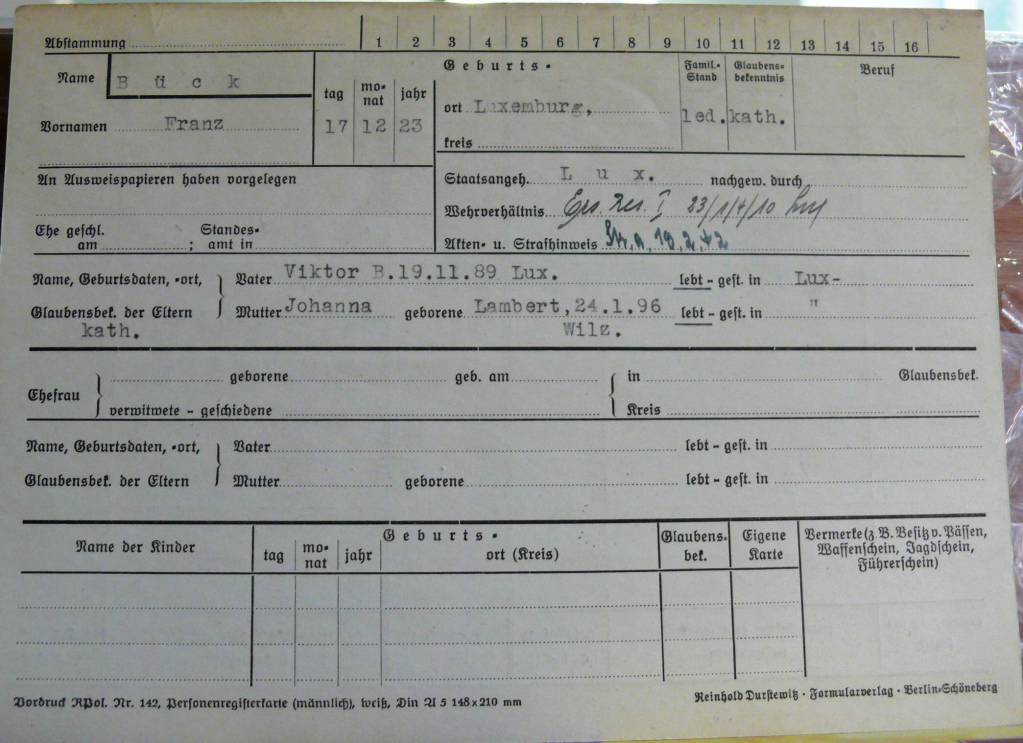 Abstammung 1 2 3 4 5 6 7 8 9 10 11 12 13 14 15 16
Name Bück
Vornamen Franz
tag monat jahr
17 12 23
Geburts-
ort Luxemburg,
kreis
Famil.-Stand
led.
Glaubens-bekenntnis
kath.
Beruf
An Ausweispapieren haben vorgelegen
Ehe geschl.
am ; Standesamt in
Staatsangeh. Lux. nachgew. durch
Wehrverhältnis Ers. Res. I 23/1/4/10
Akten- u. Strafhinweis 18.2.42
Name, Geburtsdaten, -ort, Vater Viktor B.19.11.89 Lux. lebt - gest. in Lux-
Glaubensbek. der Eltern Mutter Johanna geborene Lambert,24.1.96 lebt - gest. in "
kath. Wilz.
Ehefrau geborene geb. am in Glaubensbek.
verwitwete - geschiedene Kreis
Name, Geburtsdaten, -ort, Vater lebt - gest. in
Glaubensbek. der Eltern Mutter geborene lebt - gest. in
Name der Kinder
Geburts-
tag monat jahr ort (Kreis)
Glaubens-bek.
Eigene Karte
Vermerke (z.B. Besitz v. Pässen,
Waffenschein, Jagdschein,
Führerschein)
Vordruck RPol. Nr. 142, Personenregisterkarte (männlich), weiß, Din A 5 148x210 mm
Reinhold Durstewitz · Formularverlag · Berlin-Schöneberg